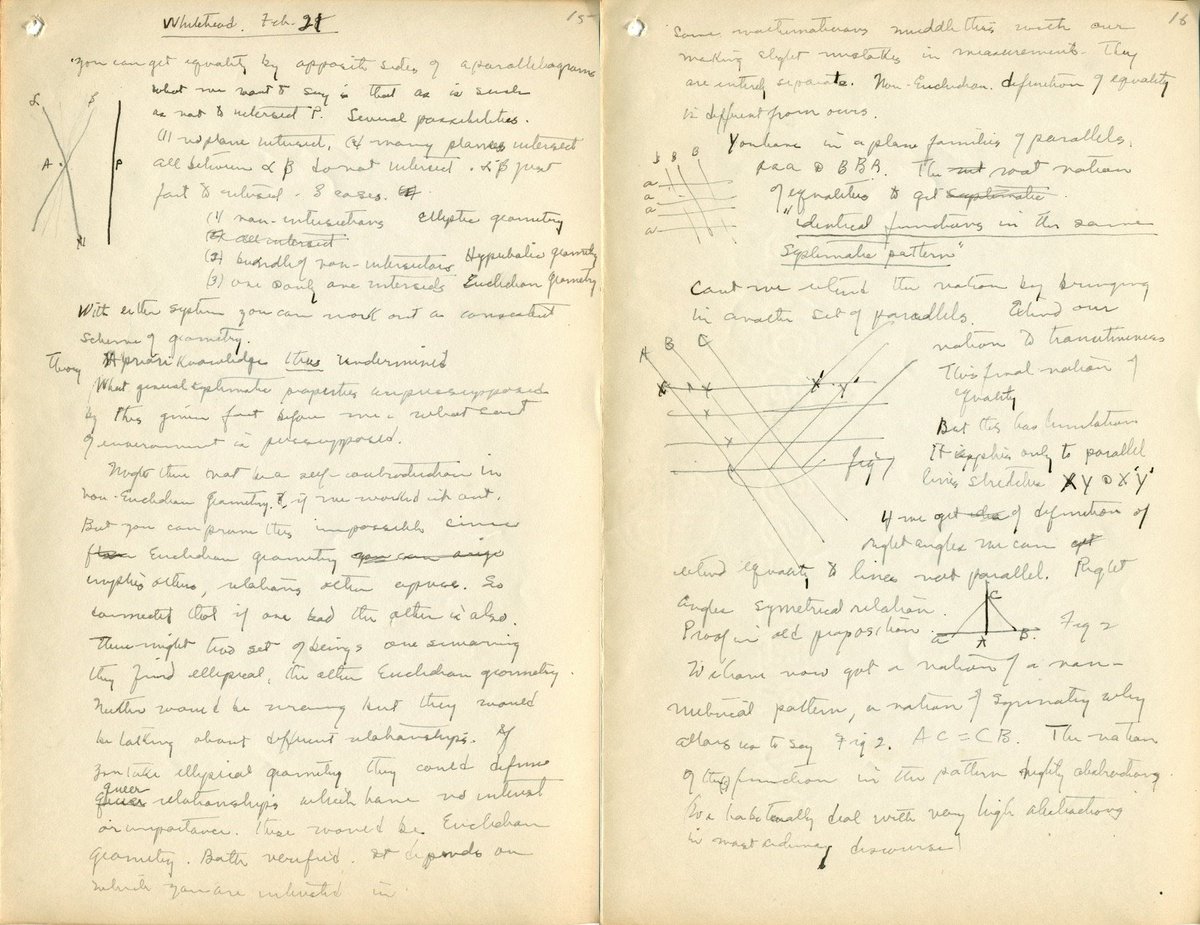 Whitehead. Feb. 21
15
You can get equality by opposite sides of a parallelograms
What we want to say is that as is such
as not to intersect P. Several possibilities.
(1) no plane intersect, (2) many planes intersect
all between α β do not intersect. α β just
fail to intersect - 3 cases.
(1) non-intersections Elliptic geometry
(2) all intersect
(2) bundle of non-intersectors Hyperbolic geometry
(3) one & only one intersects Euclidian Geometry.
α β
A P
With either system you can work out a consistent
scheme of geometry.
Theory A priori Knowledge thus undermined
What general systematic properties are presupposed
by this given fact before me - what sort
of environment is presupposed.
Might there not be a self-contradiction in
non-Euclidian Geometry, if we worked it out.
But you can prove this impossible since
Euclidian geometry
implies others, relations other apiece. So
connected that if one bad the other is also.
There might two set of beings one
they find elliptical, the other Euclidian geometry.
Neither would be wrong but they would
be talking about different relationships. If
you take elliptical geometry they could define
queer
relationships which have no interest
or importance. These would be Euclidian
Geometry. Both verified. It depends on
which you are interested in.
16
Some mathematicians muddle this with our
making slight mistakes in measurement. They
are entirely separate. Non-Euclidian definition of equality
is different from ours.
You have in a plane families of parallels,
aaa & BBB. The root notion
of equalities to get systematic
"identical functions in the same
Systematic pattern"
B B B
a
a
a
a
Can't we extend the notion by bringing
in another set of parallels. Extend our
notion to transitiveness
This final notion of
equality
But this has limitation
It applies only to parallel
lines stretches XY & X'Y'
A B C
X Y X' Y'
fig 1
If we get idea of definition of
right angles we can get
extend equality to lines not parallel. Right
angles symetrical relation.
Proof in old proposition
C
a A B. Fig 2
We have now got a notion of a non-
metrical pattern, a notion of symmetry why
allows us to say Fig 2. AC = CB. The notion
of the function in the pattern highly abstractions.
We habitually deal with very high abstractions
in most ordinary discourse!